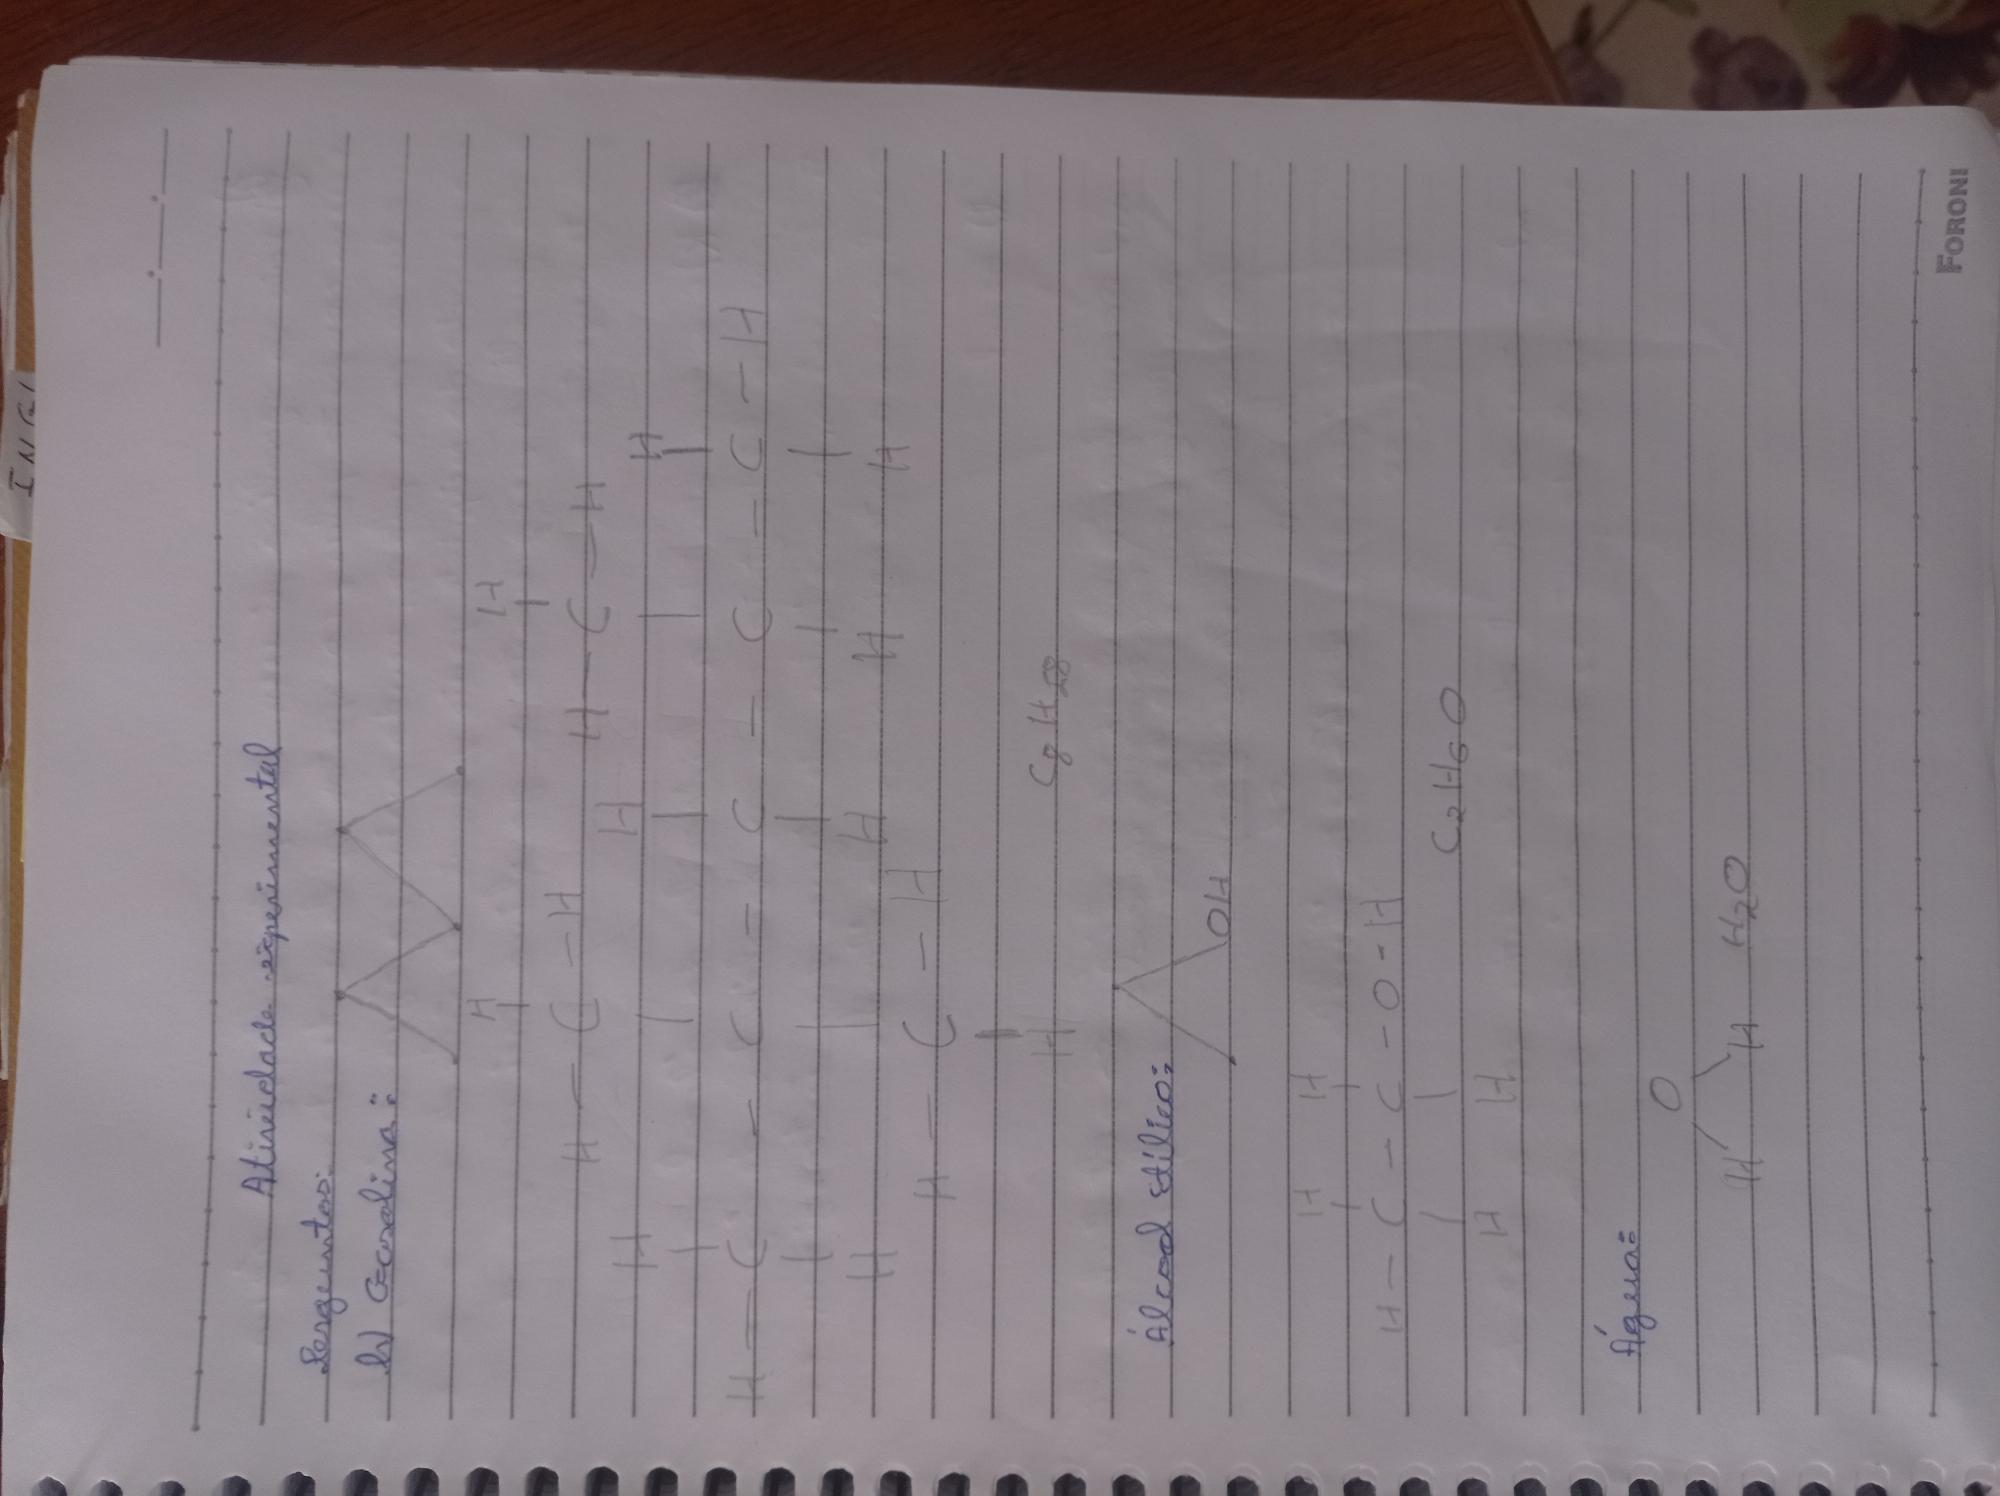 INGL
Atividade experimental
Perguntas:
1) Gasolina:
H H
H - C - H H - C - H
H H
H - C - C - C - C - C - H
H H H H
H - C - H
H
C8 H18
Álcool etílico:
OH
H H
H - C - C - O - H
H H
C2H6O
Água:
O
H H H2O
FORONI